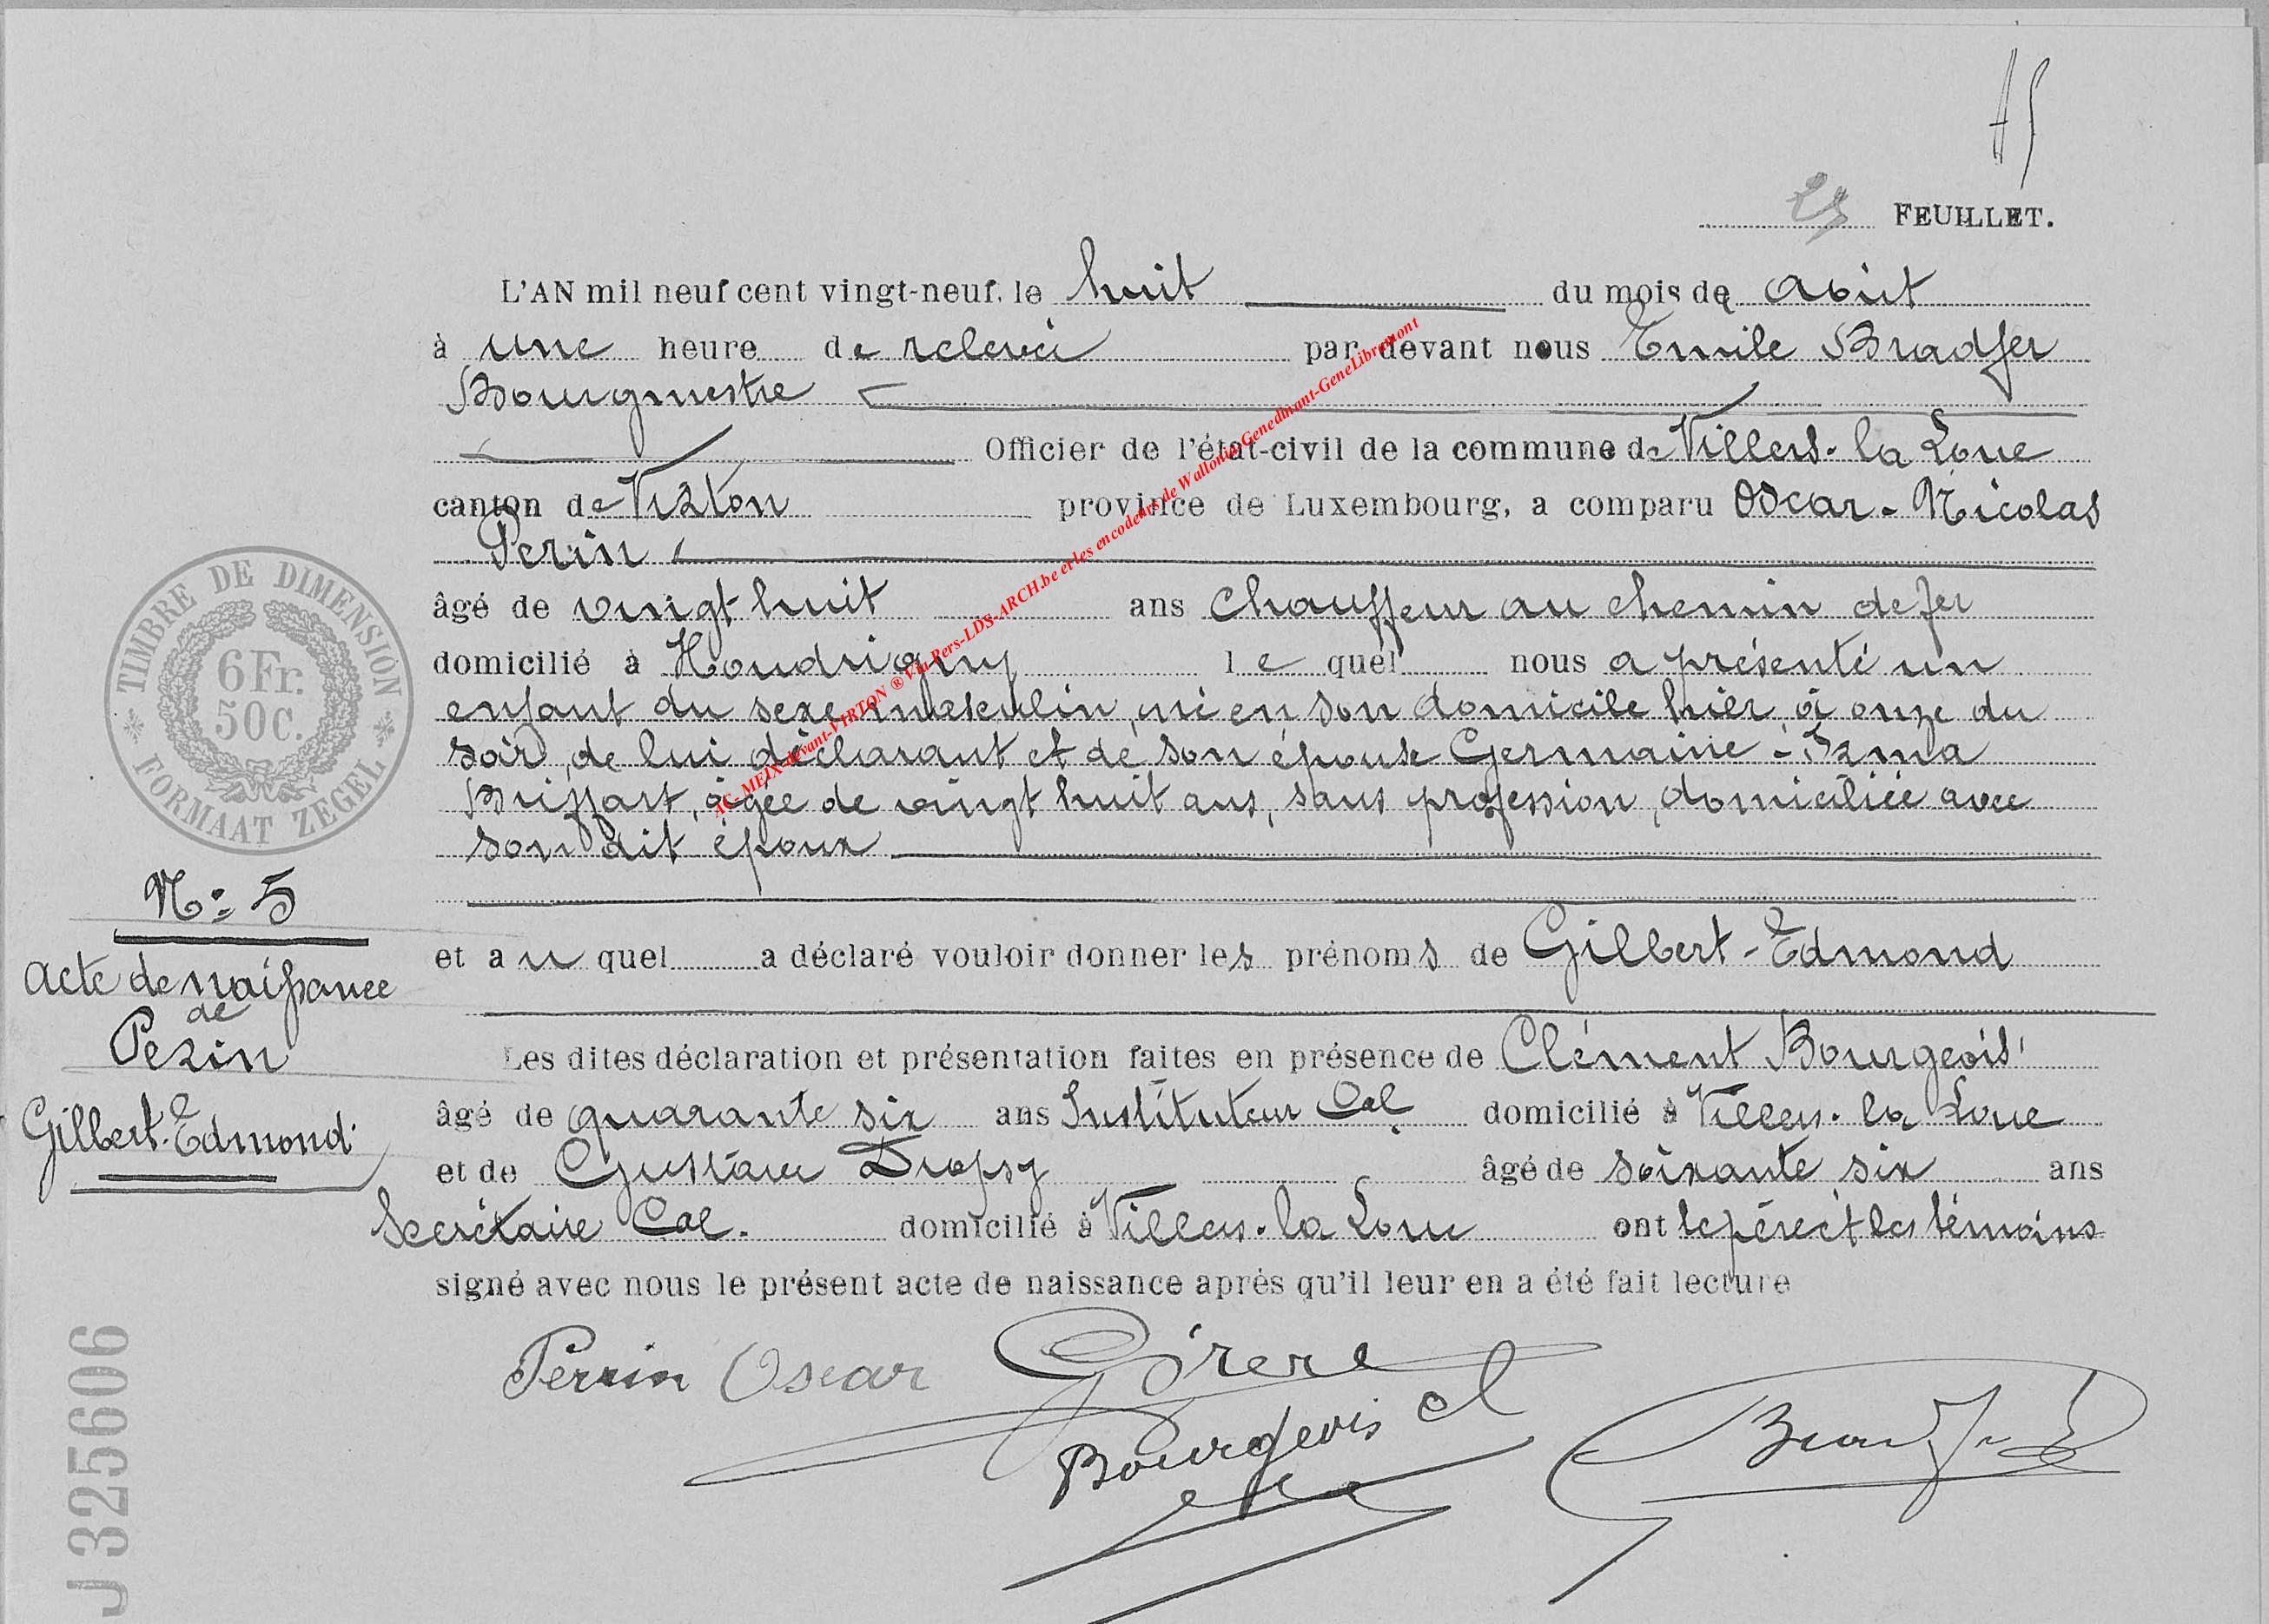 25 FEUILLET.
L'AN mil neuf cent vingt-neuf, le huit du mois de Août
à une heure de relevée par devant nous Emile Bradfer
Bourgmestre
Officier de l'état-civil de la commune de Villers-la Loue
canton de Virton province de Luxembourg, a comparu Oscar-Nicolas
Perin
âgé de vingt huit ans chauffeur au chemin de fer
domicilié à Houdrigny le quel nous a présenté un
enfant du sexe masculin, né en son domicile hier, à onze du
soir, de lui déclarant et de son épouse Germaine-Irma
Briffart, âgée de vingt huit ans, sans profession, domiciliée avec
son dit époux
et au quel a déclaré vouloir donner les prénoms de Gilbert-Edmond
Les dites déclaration et présentation faites en présence de Clément Bourgeois
âgé de quarante six ans Instituteur Cal domicilié à Villers-la Loue
et de Gustave Dropsy âgé de soixante six ans
Secrétaire Cal. domicilié à Villers-la Loue ont le père et les témoins
signé avec nous le présent acte de naissance après qu'il leur en a été fait lecture
Perrin Oscar
Bourgeois Cl
Bradfer
TIMBRE DE DIMENSION
6 Fr.
50 C.
FORMAAT ZEGEL
N° 5
Acte de naissance
de
Perin
Gilbert-Edmond
J 325606
AC-MEIX-devant-VIRTON ® Via Pers-LDS-ARCH.be et les encodeurs de Wallonie-Genedinant-GeneLibramont